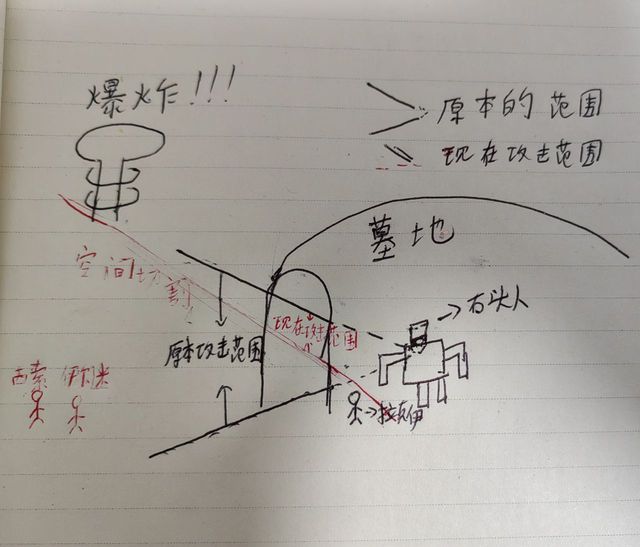 爆炸!!!
原本的范围
现在攻击范围
墓地
空间切割
石头人
现在攻击范围
原本攻击范围
古索 伊尔米
拉克伊